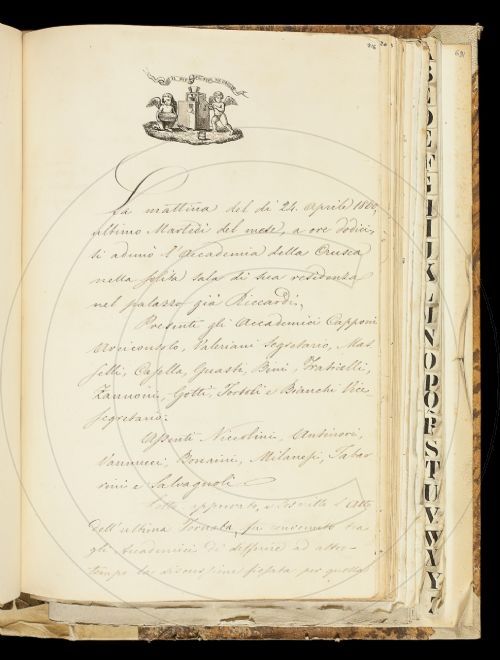 IL PIÙ BEL FIOR NE COGLIE
216
20
691
La mattina del dì 24. Aprile 1860,
ultimo Martedì del mese, a ore dodici,
si adunò l'Accademia della Crusca
nella solita sala di sua residenza
nel palazzo già Riccardi.
Presenti gli Accademici Capponi
Arciconsolo, Valeriani Segretario, Mas-
selli, Casella, Guasti, Bini, Fraticelli,
Zannoni, Gotti, Tortoli e Bianchi Vice-
segretario:
Assenti Niccolini, Antinori,
Vannucci, Bonaini, Milanesi, Tabar-
rini e Salvagnoli.
Letto, approvato, e soscritto l'Atto
dell'ultima Tornata, fu convenuto tra
gli Accademici di differire ad altro
tempo la discussione fissata per quella
A
B
C
D
E
F
G
H
I
J
K
L
M
N
O
P
Q
R
S
T
U
V
W
X
Y
Z